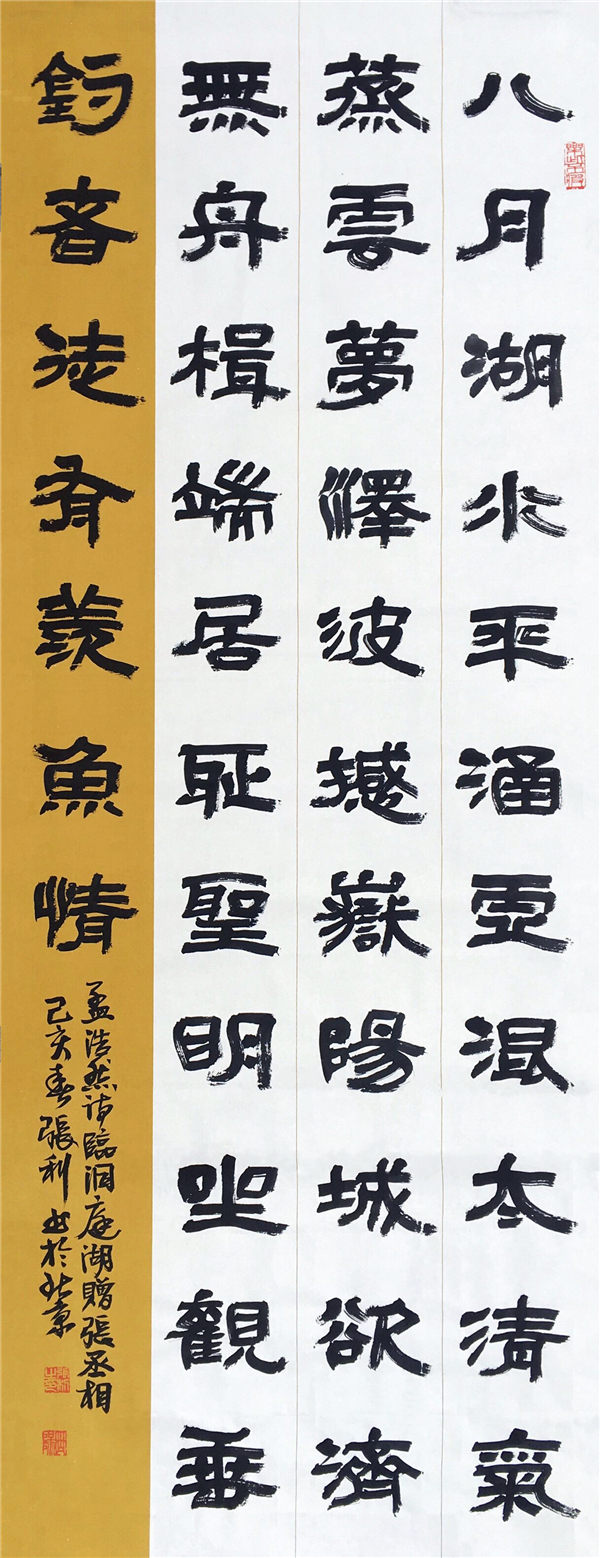 八月湖水平涵虛混太清氣
蒸雲夢澤波撼嶽陽城欲濟
無舟楫端居耻聖明坐觀垂
釣者徒有羨魚情
孟浩然詩臨洞庭湖贈張丞相
己亥春張利書於北京